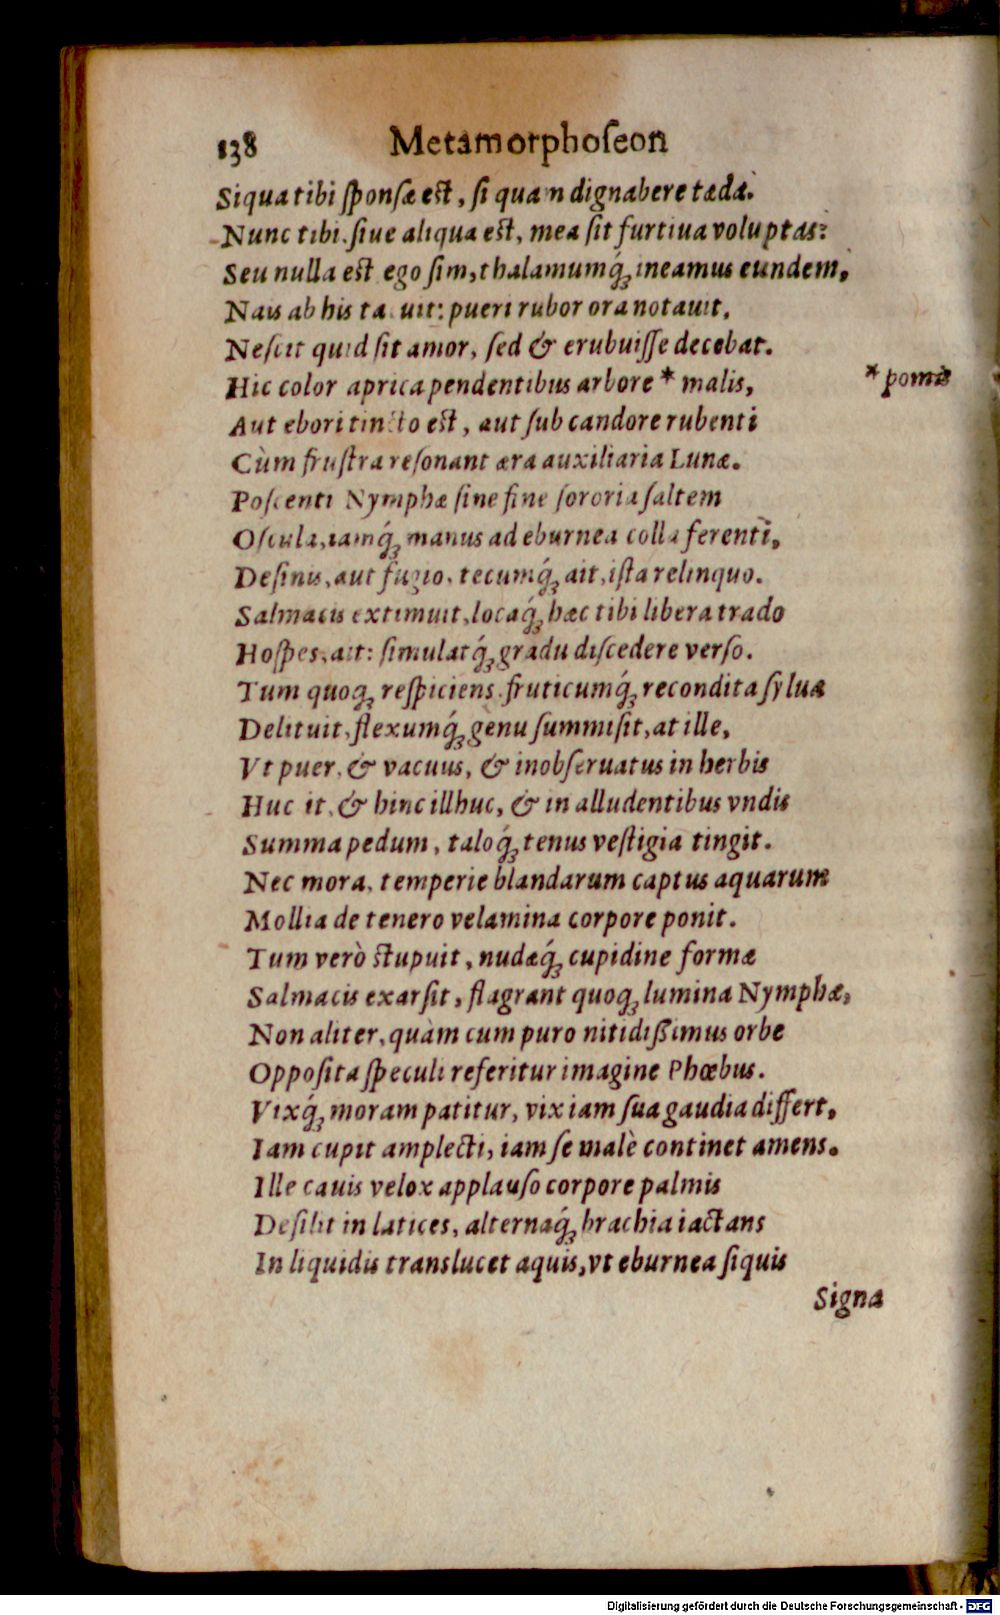 138 Metamorphoſeon
Siqua tibi ſponſæ est, ſi quam dignabere tædà.
Nunc tibi. ſiue aliqua est, mea ſit furtiua voluptas:
Seu nulla est ego ſim, thalamumq́ꝫ ineamus eundem,
Nais ab his ta uit: pueri rubor ora notauit.
Neſcit quid ſit amor, ſed & erubuiſſe decebat.
Hic color aprica pendentibus arbore * malis,
* pomis
Aut ebori tincto est, aut ſub candore rubenti
Cùm fruſtra reſonant æra auxiliaria Lunæ.
Poſcenti Nymphæ ſine fine ſororia ſaltem
Oſcula, iamq́ꝫ manus ad eburnea colla ferenti,
Deſinis, aut fugio, tecumq́ꝫ ait, iſta relinquo.
Salmacis extimuit, locaq́ꝫ hæc tibi libera trado
Hoſpes, ait: ſimulatq́ꝫ gradu diſcedere verſo.
Tum quoqꝫ reſpiciens. fruticumq́ꝫ recondita ſyluæ
Delituit, flexumq́ꝫ genu ſummiſit, at ille,
Vt puer, & vacuus, & inobſeruatus in herbis
Huc it, & hinc illhuc, & in alludentibus vndis
Summa pedum, taloq́ꝫ tenus veſtigia tingit.
Nec mora, temperie blandarum captus aquarum
Mollia de tenero velamina corpore ponit.
Tum verò stupuit, nudæq́ꝫ cupidine formæ
Salmacis exarſit, flagrant quoqꝫ lumina Nymphæ,
Non aliter, quàm cum puro nitidißimus orbe
Oppoſita ſpeculi referitur imagine Phœbus.
Vixq́ꝫ moram patitur, vix iam ſua gaudia differt,
Iam cupit amplecti, iam ſe malè continet amens.
Ille cauis velox applauſo corpore palmis
Deſilit in latices, alternaq́ꝫ brachia iactans
In liquidis translucet aquis, vt eburnea ſiquis
Signa
Digitalisierung gefördert durch die Deutsche Forschungsgemeinschaft - DFG